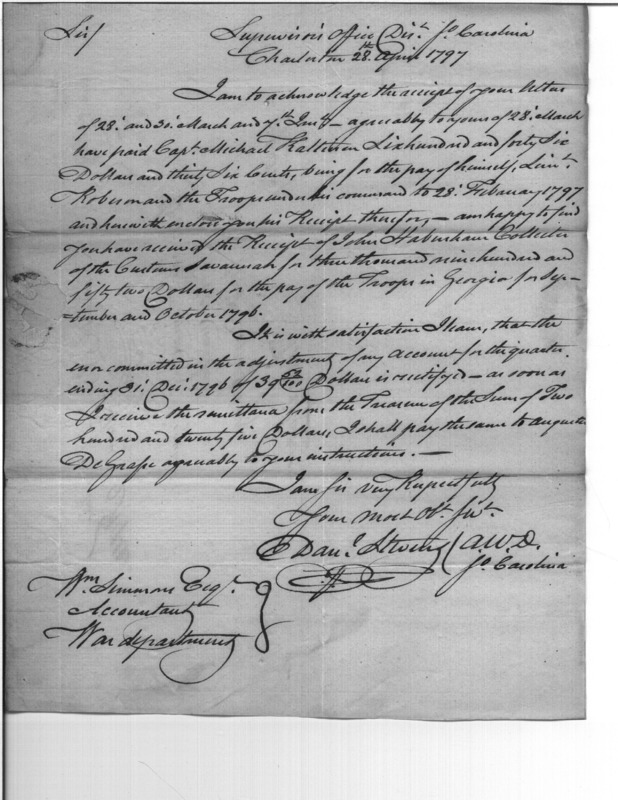 Sir/ Supervisor's office Dist. So. Carolina
Charleston 28th April 1797
I am to acknowledge the receipt of your letters
of 28th and 30th March and 7th Inst. — agreeably to yours of 28th March
have paid Capt. Michael Kalteison Six hundred and forty Six
Dollars and thirty Six Cents, being for the pay of himself, Lieut.
Roberson and the Troops under his command to 28th February 1797
and herewith enclose you his Receipt therefor, — am happy to find
you have received the Receipt of John Habersham Collector
of the Customs Savannah for three thousand nine hundred and
fifty two Dollars for the pay of the Troops in Georgia for Sep-
=tember and October 1796.
It is with satisfaction I learn, that the
error committed in the adjustment of my Account for the quarter
ending 31st Decr. 1796 of 39 52/100 Dollars is rectifyed — as soon as
I receive the remittance from the Treasurer of the Sum of Two
hundred and twenty five Dollars, I shall pay the same to Augustus
De Grasse agreeably to your instructions. —
I am Sir very Respectfully
Your most Obt. Servt.
Danl. Stevens A.W.D.
So. Carolina
Wm. Simmons Esqr.
Accountant
War department